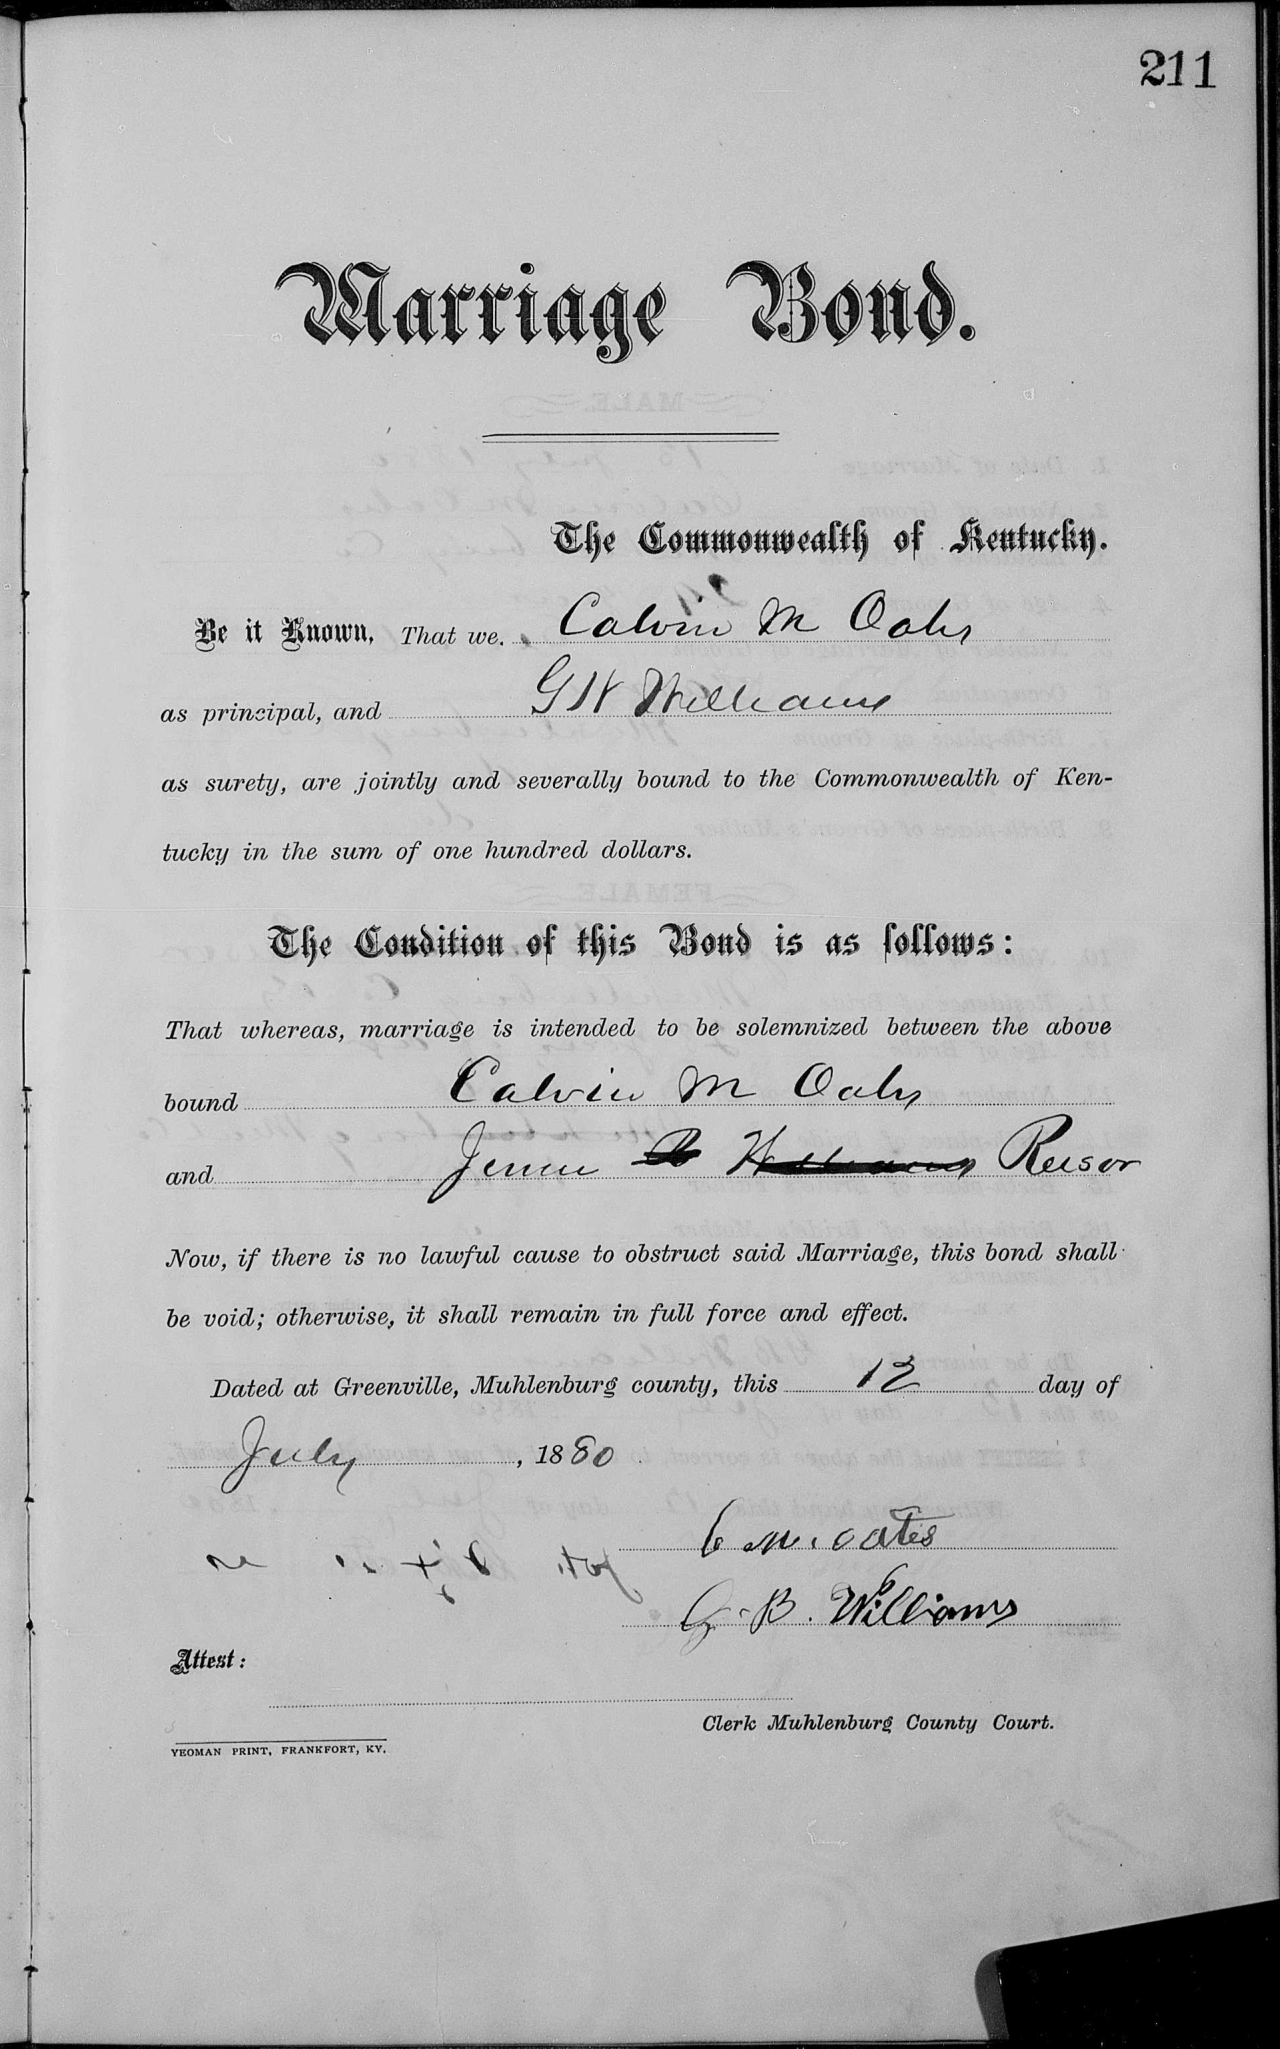 211
Marriage Bond.
The Commonwealth of Kentucky.
Be it Known, That we, Calvin M Oats
as principal, and G W Williams
as surety, are jointly and severally bound to the Commonwealth of Ken-
tucky in the sum of one hundred dollars.
The Condition of this Bond is as follows:
That whereas, marriage is intended to be solemnized between the above
bound Calvin M Oats
and Jennie B Williams Reesor
Now, if there is no lawful cause to obstruct said Marriage, this bond shall
be void; otherwise, it shall remain in full force and effect.
Dated at Greenville, Muhlenburg county, this 12 day of
July, 1880
C M. Oates
G. B. Williams
Attest:
Clerk Muhlenburg County Court.
YEOMAN PRINT, FRANKFORT, KY.